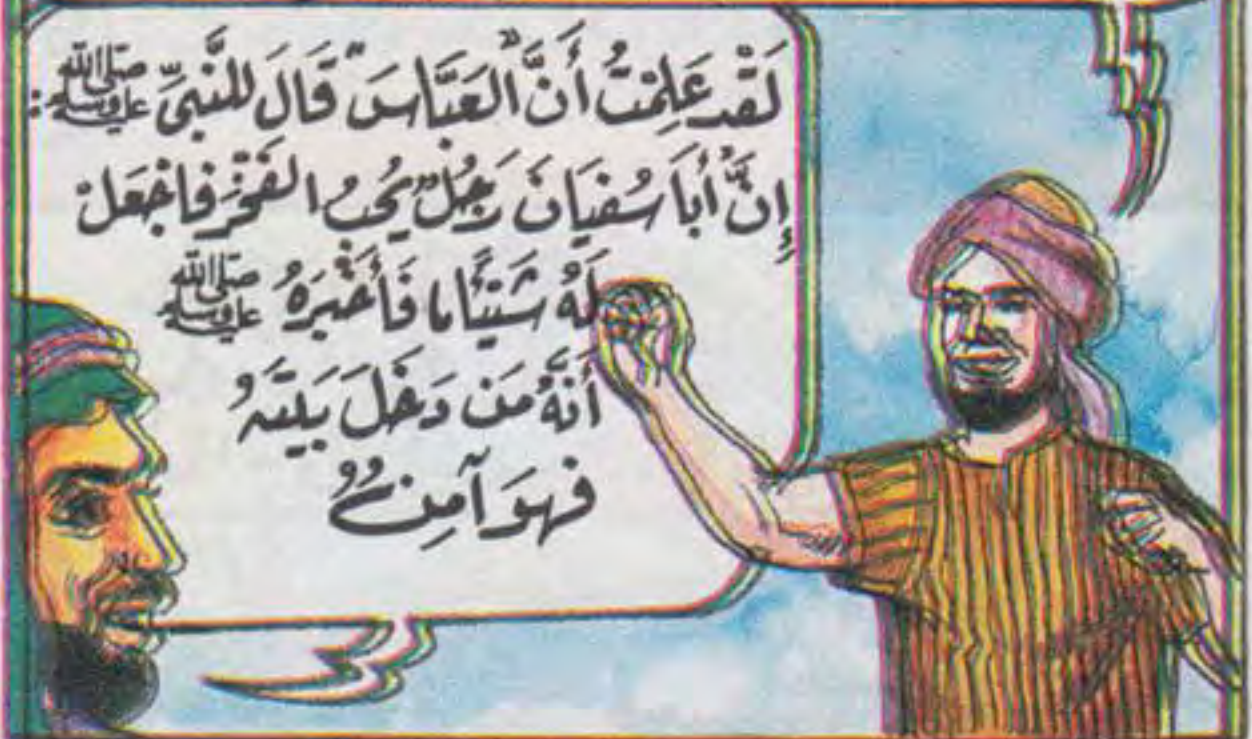 لَقَدْ عَلِمْتُ أَنَّ العَبَّاسَ قَالَ للنَّبِيِّ ﷺ:
إِنَّ أَبَا سُفْيَانَ رَجُلٌ يُحِبُّ الفَخْرَ فَاجْعَلْ
لَهُ شَيْئًا فَأَخْبَرَهُ ﷺ
أَنَّهُ مَنْ دَخَلَ بَيْتَهُ
فَهُوَ آمِنٌ